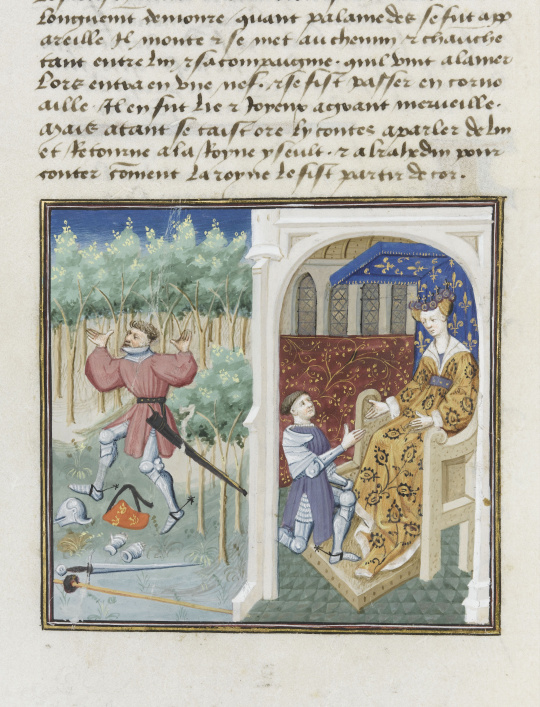 longuement demoure / quant palamedes se fut app
areille Il monte & se met au chemin & chauche
tant entre luy & sa compaignie quil vint a la mer
Lors entra en vne nef . & se fist passer en corno
aille . Il en fut lie & Joyeux a grant merueille .
Mais atant se taist ore ly contes a parler de luy
et Retourne a la Royne yseult . & a kahedin pour
conter cõment La royne Le fist partir de cor .